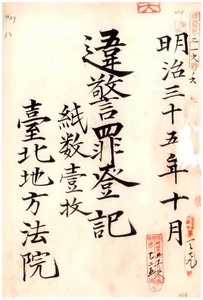 明治三十五年十月
違警罪登記
紙数壹枚
臺北地方法院